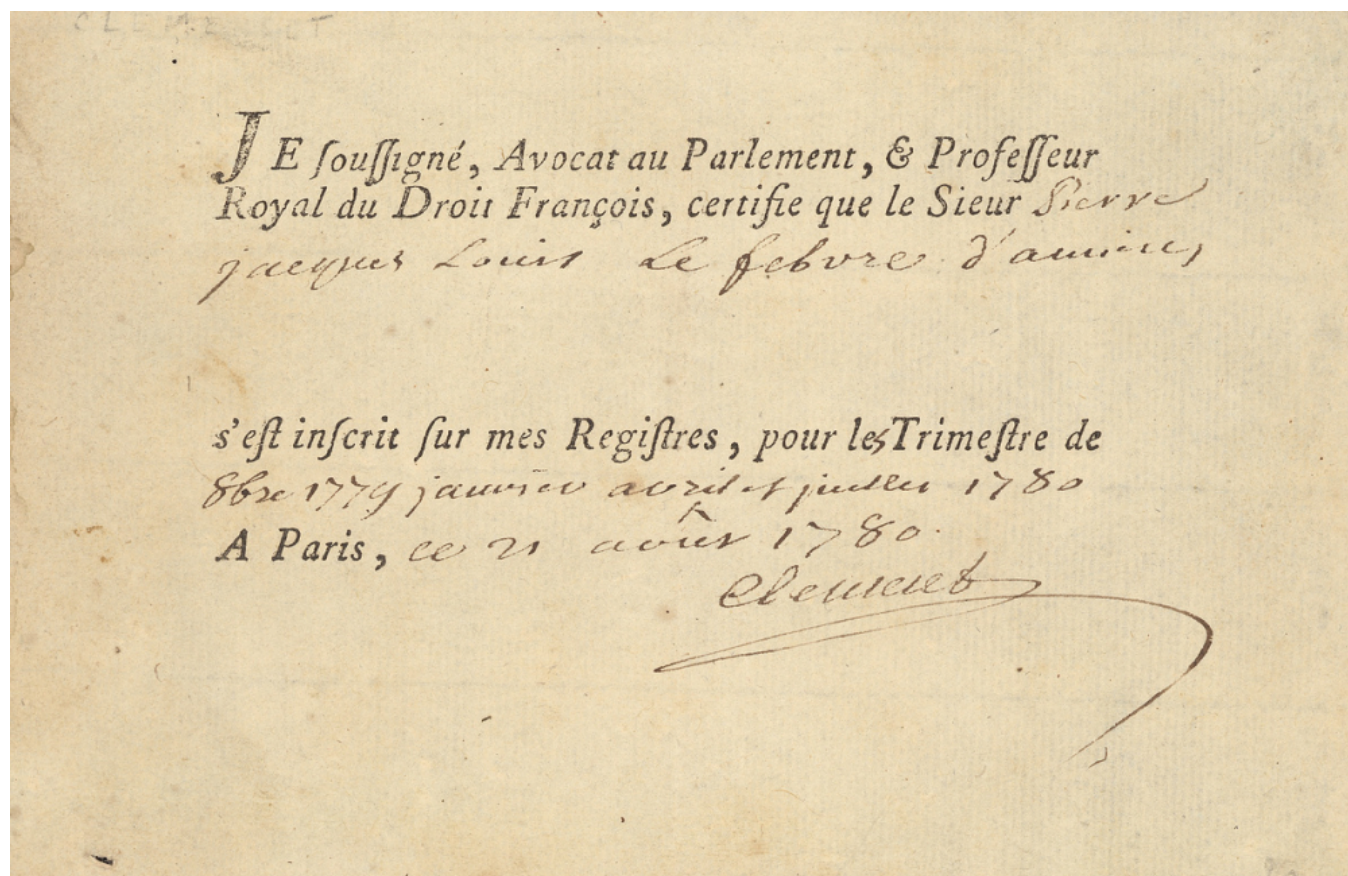 CLEMENCET
JE souſſigné, Avocat au Parlement, & Profeſſeur
Royal du Droit François, certifie que le Sieur Pierre
jacques Louis Le febvre d'amiens
s'eſt inſcrit ſur mes Regiſtres, pour les Trimeſtre de
8bre 1779 janvier avril et juillet 1780
A Paris, ce 21 août 1780.